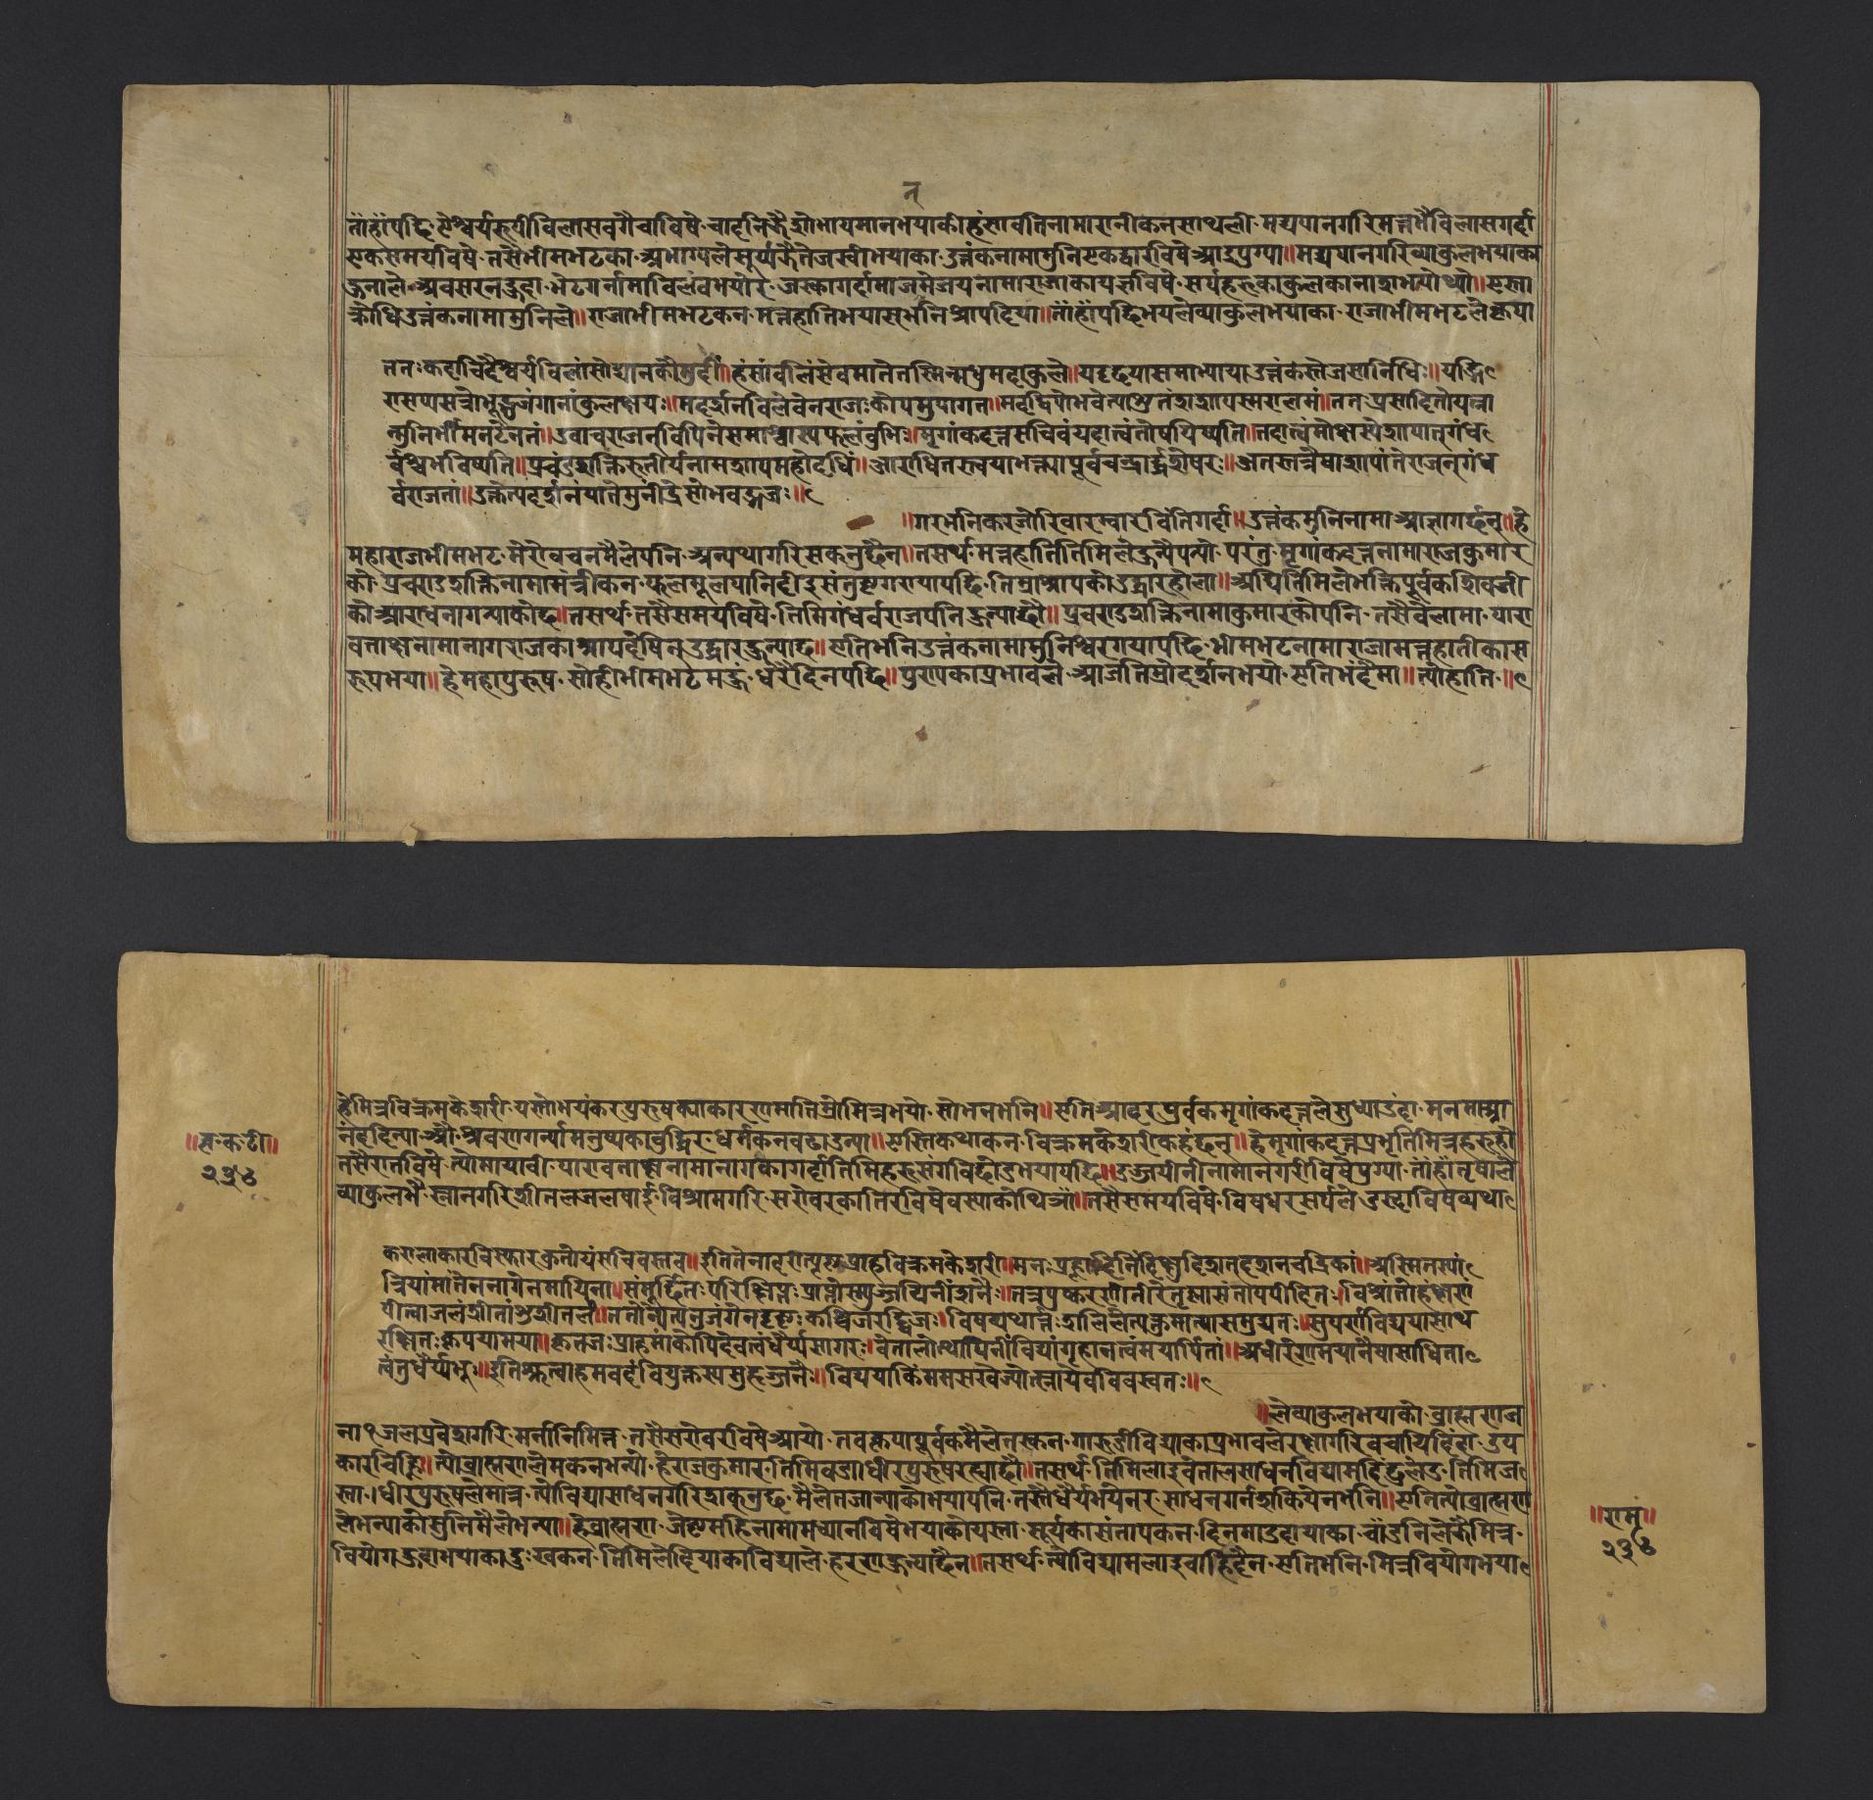 न्
ताँहाँपछि ऐश्वर्यरूपीविलासबगैचाविषे चादनिझैशोभायमानभयाकी हंसावलिनामारानीकनसाथली मद्यपानगरिमत्तभैविलासगर्दा
एकसमयविषे तसैभीमभटका अभाग्यलेसूर्य्यझैतेजस्वीभयाका उत्तंकनामामुनिएकद्वारविषेआइपुग्या॥मद्यपानगरिव्याकुलभयाका
हुनाले अवसरनहुदा भेटगर्नामाविलंवभयोर जस्कागर्दामाजमेजयनामाराजाकायज्ञविषे सर्पहरुकाकुलकानाशभयोथ्यो॥एस्ता
क्रोधिउत्तंकनामामुनिले॥राजाभीमभटकन मत्तहात्तिभयासभनिश्रापदिया॥ताँहाँपछिभयलेव्याकुलभयाका राजाभीमभटलेकृपा
ततःकदाचिदैश्वर्यविलासोद्यानकौमुदीं॥हंसावलिंसेवमानेतस्मिन्मधुमदाकुले॥यदृछयासमाध्यायाउत्तंकस्तेजसांनिधिः॥यद्गि
रासप्यसत्रेभूद्भुजंगानांकुलक्षयः॥मददर्शनविलंवेनराजःकोपमुपागत॥मदद्विपोभवेत्याशुतंशशापस्मरालसं॥ततःप्रसादितोयत्ना
न्मुनिर्भीमभटेनतं॥उवाचराजन्विपिनेसमाश्वास्यफलंवुभिः॥मृगांकदत्तसचिवंयदात्वंतोषयिष्यति॥तदात्वंमोक्षसेशापात्गंध
र्वश्चभविष्यति॥प्रचंडशक्तिस्तीर्यनामशापमहोदधिं॥आराधितस्त्वयाभक्त्यापूर्वचन्द्रार्द्धशेषर॥अतस्तत्रैषाशापांतेराजन्गंध
र्वराजतां॥उक्तेत्यदर्शनंयातेमुनींद्रेसोभवद्गजः॥
॥गरभनिकरजोरिवारम्वारविंतिगर्दा॥उत्तंकमुनिनामाआज्ञागर्छन्॥हे
महाराजभीमभट मेरोवचनमैलेपनि अन्यथागरिसकनुछैन॥तसर्थ मत्तहात्तितिमिलेहुनैपर्न्यो परंतु मृगांकदत्तनामाराजकुमार
को प्रचण्डशक्तिनामामंत्रीकन फलमूलपानिदीइसंतुष्टगरायापछि तिम्राश्रापकोउद्धारहोला॥अघितिमिलेभक्तिपूर्वकशिवजी
कोआराधनागर्‍याकोछ॥तसर्थ तसैसमयविषे तिमिगंधर्वराजपनिहुन्याछौ॥प्रचण्डशक्तिनामाकुमारकोपनि तसैवेलामा पारा
वताक्षनामानागराजकाश्रापदेषिन्उद्धारहुन्याछ॥एतिभनिउत्तंकनामामुनिश्वरगयापछि भीमभटनामाराजामत्तहातीकास
रूपभया॥हेमहापुरूष सोहीभीमभटमहुं धेरैदिनपछि॥पुण्यकाप्रभावले आजतिम्रोदर्शनभयो एतिभंदैमा॥त्योहात्ति॥
हेमित्रविक्रमकेशरी यस्तोभयंकरपुरूषक्याकारणमातिम्रोमित्रभयो सोभनभनि॥एतिआदरपूर्वकमृगांकदत्तलेसुध्याउंदा मनमाआ
नंददिन्या औ श्रवणगर्न्यामनुष्यकावुद्धिर धर्मकनवढाउन्या॥एस्तिकथाकन विक्रमकेशरीकहंछन्॥हेमृगांकदत्तप्रभृतिमित्रहरूहो
तसैरातविषे त्योमायावी पारावताक्षनामानागकागर्दातिमिहरूसंगविछोडभयापछि॥उज्जयीनीनामानगरीविषेपुग्या ताँहाँतृषाले
व्याकुलभै स्नानगरिशीतलजलषाई विश्रामगरि सरोवरकातिरविषेवस्याकोथिञा॥तसैसमयविषे विषधरसर्पले डस्दाविषव्यथा
॥व॰क॰टी॥
२३४
करालाकारविस्फारकुतोयंसचिवस्तव॥इतितेनादरात्पृष्टःप्राहविक्रमकेशरी॥मनःप्रह्लादिनिंदिक्षुदिशतदशनचद्रिकां॥अस्मिंतस्यां
त्रियांमांतेननागेनमायिना॥संमूर्छितःपरिक्षिप्तःप्राप्तोस्म्युज्जयिनींशनै॥तत्रपुष्करणीतीरेतृष्णासंतापपीडितः॥विश्रांतोहंक्षणं
पीत्वाजलंशीतांशुशीतलं॥ततोन्येत्यभुजंगेनदृष्टःकश्चिज्जरद्द्विजः॥विषव्यथार्त्तःशलिलेत्यक्तुमात्मासमुद्यतः॥सुपर्णविद्ययासोथ
रक्षितःकृपयामया॥कृतज्ञःप्राहमांकोपिदेवत्वंधैर्य्यसागरः॥वेतालोत्थापिनींविद्यांगृहाणत्वंमयार्पितां॥अधीरेणमयानैषासाधिता
त्वंतुधैर्य्यभूः॥इतिश्रुत्वाहमवदंवियुक्तस्यसुहृज्जनैः॥विद्ययाकिंममसखेज्योत्स्नायेवविवस्वतः॥
॥लेव्याकुलभयाको ब्राह्मणज
ना१जलप्रवेशगरि मर्नानिमित्त तसैसरोवरविषेआयो तवकृपापूर्वकमैलेतस्कन गारुडीविद्याकाप्रभावलेरक्षागरिवचायिदिंदा उप
कारचिह्नि॥त्योब्राह्मणलेमकनभन्यो हेराजकुमार तिमिवडाधीरपुरूषरह्याछौ॥तसर्थ तिमिलाइवेतालसाधनविद्यामदिंछुलेउ तिमिज
स्ता धीरपुरुषलेमात्र त्योविद्यासाधनगरिशकनुछ मैलेतजान्याकोभयापनि तस्तोधैर्यभयेनर साधनगर्नशकियेनभनि॥एतित्योब्राह्मण
लेभन्याकोसुनिमैलेभन्या॥हेब्राह्मण जेष्ठमहिनामामध्यानविषेभयाकोयस्ता सूर्यकासंतापकन दिनमाउदायाका चाँउनिलेझैमित्र
वियोगहुनभयाकादुःखकन तिमिलेदियाकाविद्याले हरणहुन्याछैन॥तसर्थ त्योविद्यामलाइचाहिदैन एतिभनि मित्रवियोगभया
॥राम॥
२३४